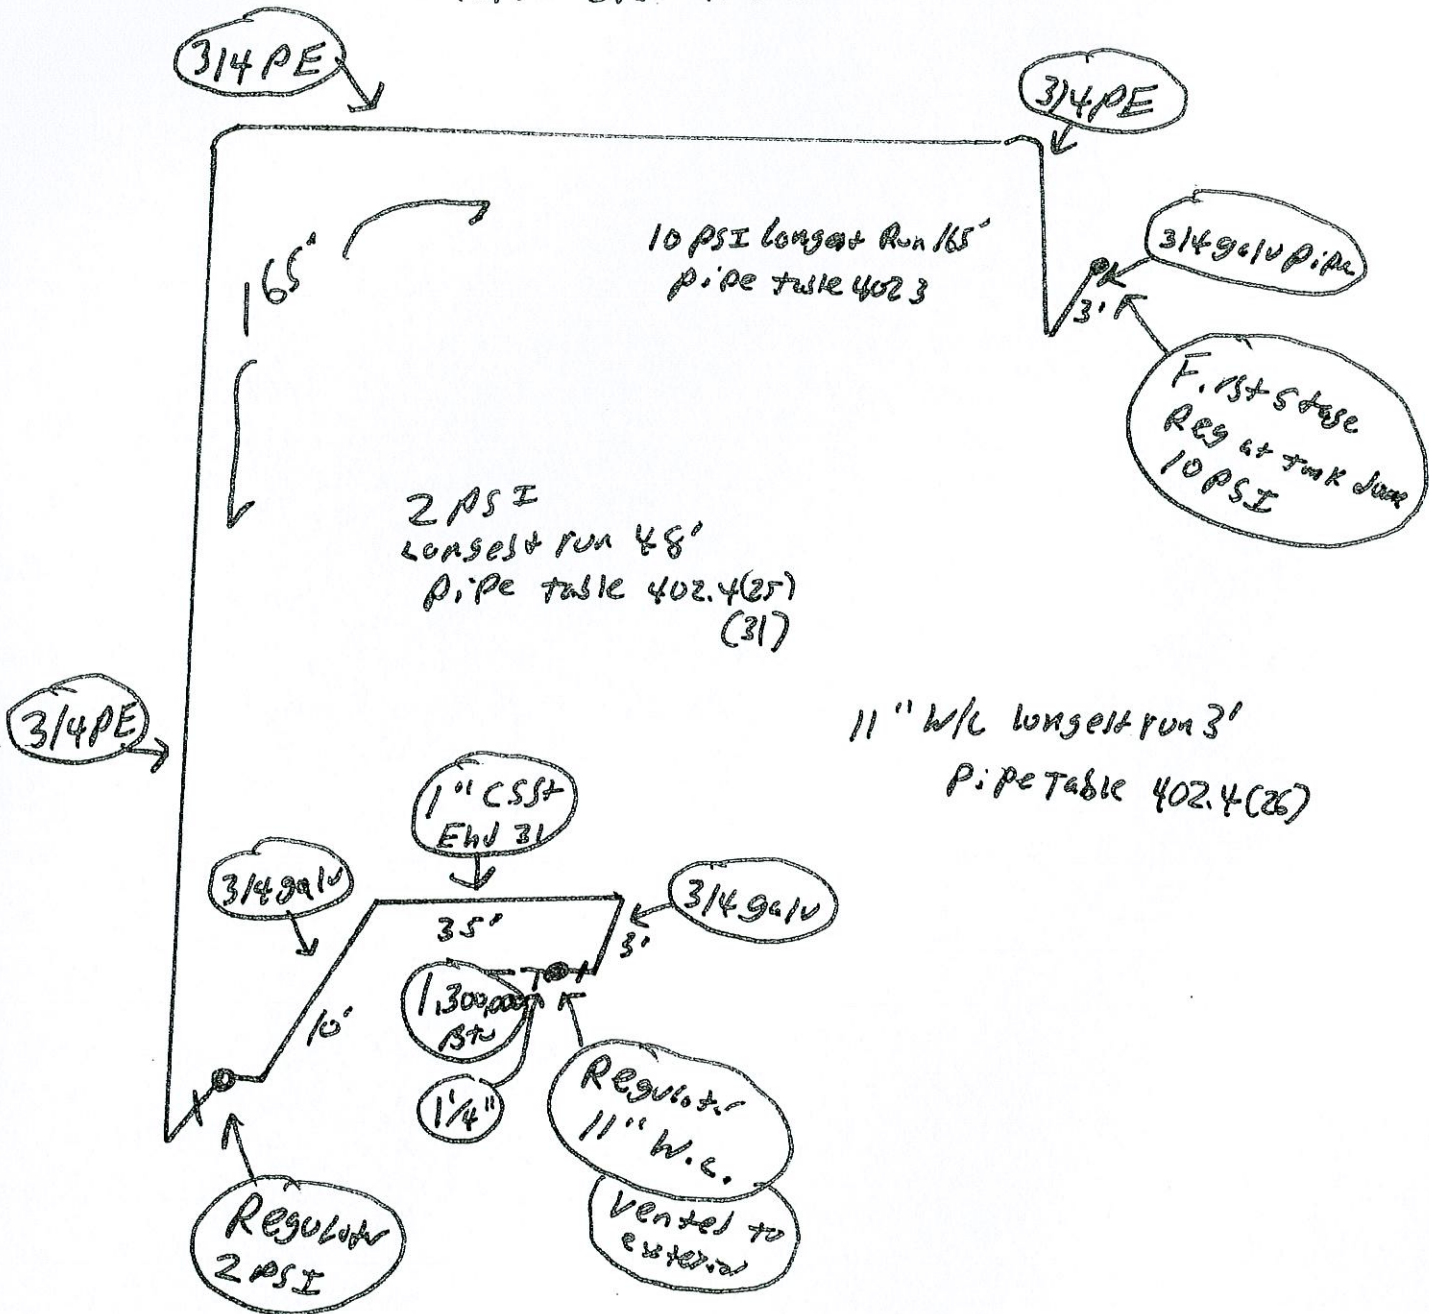 3/4 PE
3/4 PE
165'
10 PSI longest Run 165'
pipe table 4023
3/4 galv pipe
3'
First stage
Reg at tank dome
10 PSI
2 PSI
Longest run 48'
pipe table 402.4(25)
(31)
3/4 PE
11" W/C longest run 3'
Pipe Table 402.4(26)
1" CSST
Ehd 31
3/4 galv
35'
3/4 galv
3'
10'
1,300,000
Btu
1 1/4"
Regulator
11" W.C.
Vented to
exterior
Regulator
2 PSI